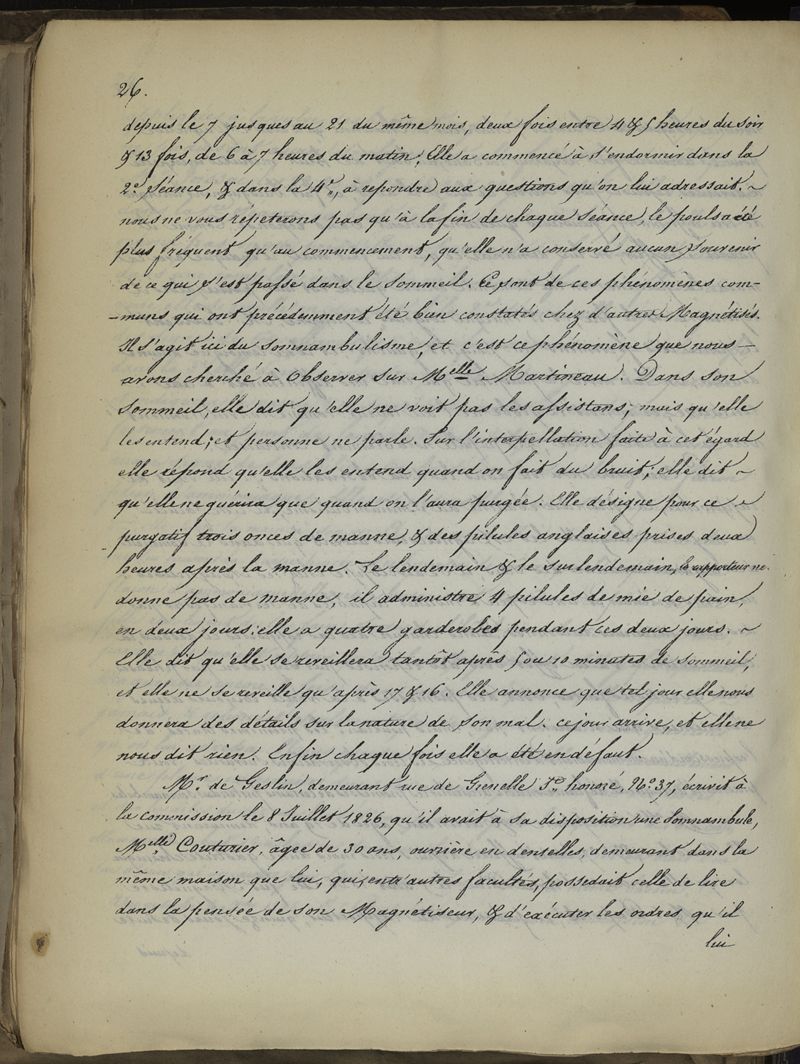 26.
depuis le 7 jusques au 21 du même mois, deux fois entre 4 & 5 heures du soir
& 13 fois, de 6 à 7 heures du matin; Elle a commencé à s'endormir dans la
2e Séance, & dans la 4e, à repondre aux questions qu'on lui adressait. ~
nous ne vous répeterons pas qu'à la fin de chaque Séance, le pouls a été
plus fréquent qu'au commencement, qu'elle n'a conservé aucun souvenir
de ce qui s'est passé dans le sommeil. Ce sont de ces phénomènes com-
-muns qui ont précédemment été bien constatés chez d'autres Magnétisés.
Il s'agit ici du somnambulisme, et c'est ce phénomène que nous —
avons cherché à Observer sur Melle Martineau. Dans son
Sommeil, elle dit qu'elle ne voit pas les assistans, mais qu'elle
les entend; et personne ne parle. Sur l'interpellation faite à cet égard
elle répond qu'elle les entend quand on fait du bruit; elle dit ~
qu'elle ne guérira que quand on l'aura purgée. Elle désigne pour ce ~
purgatif trois onces de manne, & des pilules anglaises prises deux
heures après la manne. Le lendemain & le surlendemain, le rapporteur ne
donne pas de manne, il administre 4 pilules de mie de pain,
en deux jours: elle a quatre garderobes pendant ces deux jours. ~
Elle dit qu'elle se reveillera tantôt après 5 ou 10 minutes de sommeil,
et elle ne se reveille qu'après 17 & 16. Elle annonce que tel jour elle nous
donnera des détails sur la nature de son mal. ce jour arrive, et elle ne
nous dit rien. Enfin chaque fois elle a été en défaut.
Mr. de Geslin, demeurant rue de Grenelle St. honoré, No. 37, écrivit à
la Commission le 8 Juillet 1826, qu'il avait à sa disposition une Somnambule,
Melle Couturier, âgée de 30 ans, ouvrière en dentelles, demeurant dans la
même maison que lui, qui, entr'autres facultés, possedait celle de lire
dans la pensée de son Magnétiseur, & d'exécuter les ordres qu'il
lui